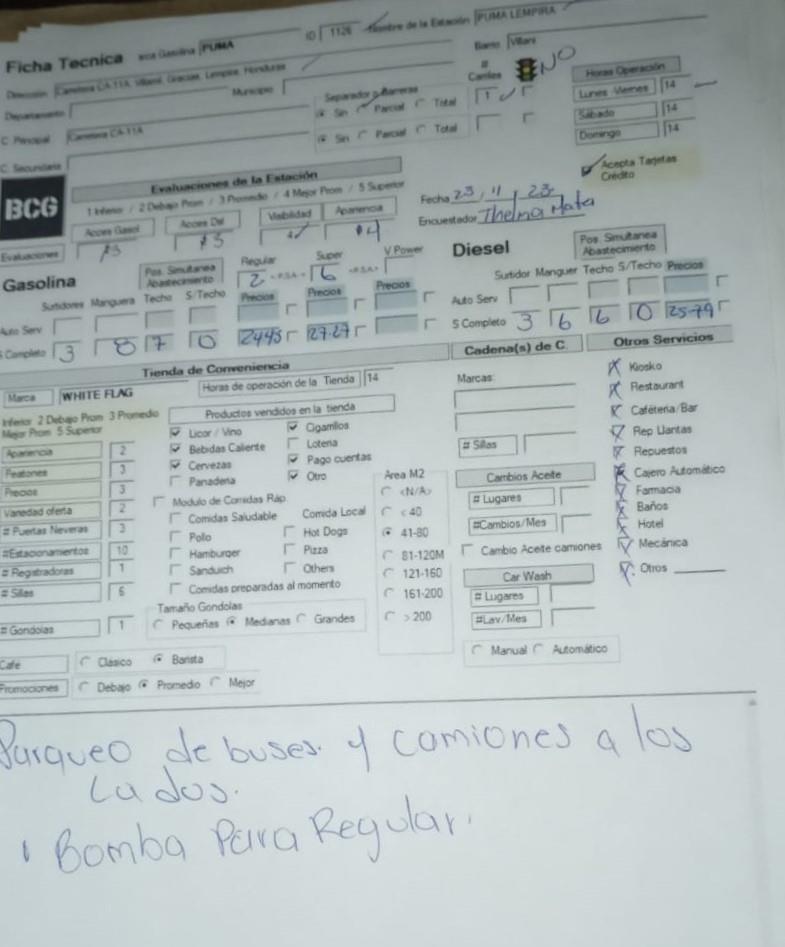 Ficha Tecnica
Gasolina PUMA
ID 1126
Nombre de la Estación PUMA LEMPIRA
Dirección Carretera CA-11A, Villami, Gracias, Lempira, Honduras
Barrio Villami
NO
Departamento
Municipio
Separador o Barreras
# Carriles
Horas Operación
C. Principal Carretera CA-11A
Sin Parcial Total 1
Lunes Viernes 14
Sábado 14
Sin Parcial Total
Domingo 14
C. Secundaria
Acepta Tarjetas Crédito
BCG
Evaluaciones de la Estación
1 Inferior / 2 Debajo Prom / 3 Promedio / 4 Mejor Prom / 5 Superior
Fecha 23/11/23
Encuestador Thelma Mata
Acces Gasol Acces Dsl Visibilidad Apariencia
Evaluaciones 3 3 4 4
Gasolina
Pos. Simultanea Abastecimiento
Regular 2 Super 6 V Power
Surtidores Manguera Techo S/Techo Precios Precios Precios
Auto Serv
S Completo 3 8 7 0 127.27
Diesel
Pos. Simultanea Abastecimiento
Surtidor Manguer Techo S/Techo Precios
Auto Serv
S Completo 3 6 6 0 25-79
Tienda de Conveniencia
Marca WHITE FLAG
Horas de operación de la Tienda 14
Inferior 2 Debajo Prom 3 Promedio
Mejor Prom 5 Superior
Apariencia 2
Peatones 3
Precios 3
Variedad oferta 2
# Puertas Neveras 3
#Estacionamientos 10
# Registradoras 1
# Sillas 6
# Gondolas 1
Productos vendidos en la tienda
Licor / Vino Cigarrillos
Bebidas Caliente Loteria
Cervezas Pago cuentas
Panaderia Otro
Modulo de Comidas Rap.
Comidas Saludable Comida Local
Pollo Hot Dogs
Hamburger Pizza
Sanduich Others
Comidas preparadas al momento
Tamaño Gondolas
Pequeñas Medianas Grandes
Area M2
<N/A>
< 40
41-80
81-120M
121-160
161-200
> 200
Café Clásico Barista
Promociones Debajo Promedio Mejor
Cadena(s) de C.
Marcas:
# Sillas
Cambios Aceite
# Lugares
#Cambios/Mes
Cambio Aceite camiones
Car Wash
# Lugares
#Lav/Mes
Manual Automático
Otros Servicios
Kiosko
Restaurant
Caféteria/Bar
Rep Llantas
Repuestos
Cajero Automático
Farmacia
Baños
Hotel
Mecánica
Otros
Parqueo de buses. y camiones a los
Lados.
Bomba Para Regular.